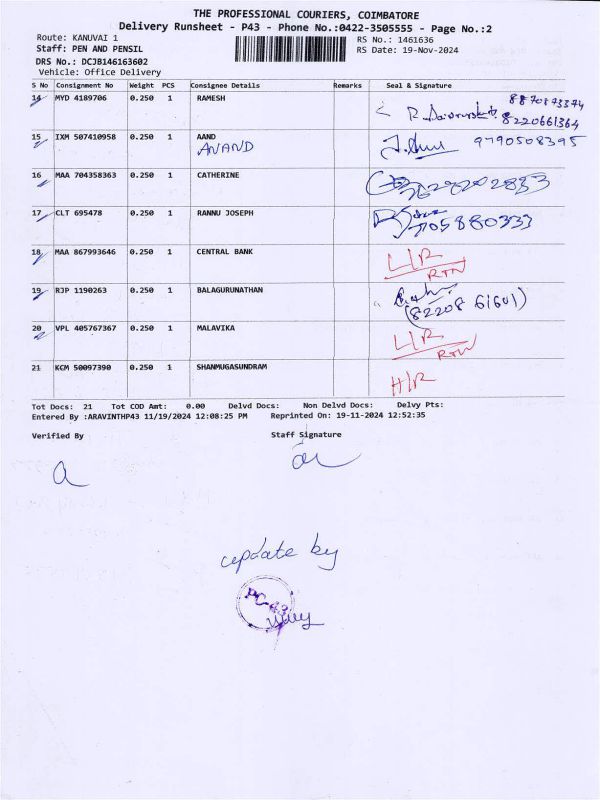 THE PROFESSIONAL COURIERS, COIMBATORE
Delivery Runsheet - P43 - Phone No.:0422-3505555 - Page No.:2
Route: KANUVAI 1 RS No.: 1461636
Staff: PEN AND PENSIL RS Date: 19-Nov-2024
DRS No.: DCJB146163602
Vehicle: Office Delivery
S No Consignment No Weight PCS Consignee Details Remarks Seal & Signature
14 MYD 4189706 0.250 1 RAMESH 8870873374
8220661364
15 IXM 507410958 0.250 1 AAND 9790508395
ANAND
16 MAA 704358363 0.250 1 CATHERINE
17 CLT 695478 0.250 1 RANNU JOSEPH
7705880333
18 MAA 867993646 0.250 1 CENTRAL BANK L/R
RTN
19 RJP 1190263 0.250 1 BALAGURUNATHAN
(82208 61601)
20 VPL 405767367 0.250 1 MALAVIKA L/R
RTN
21 KCM 50097390 0.250 1 SHANMUGASUNDRAM
H/R
Tot Docs: 21 Tot COD Amt: 0.00 Delvd Docs: Non Delvd Docs: Delvy Pts:
Entered By :ARAVINTHP43 11/19/2024 12:08:25 PM Reprinted On: 19-11-2024 12:52:35
Verified By Staff Signature
update by